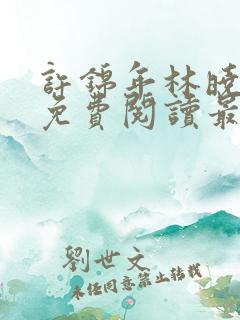 許錦年林曉
免費閱讀最
劉世文
未經同意禁止轉載